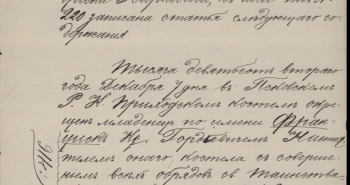 220 записана статья слѣдующаго со-
держанія
Тысяча девятьсотъ второго
года Декабря 7 дня въ Псковскомъ
Р. К. Приходскомъ костелѣ окре-
щенъ младенецъ по имени Фран-
цискъ Кс. Гордкевичемъ Насто-
ятелемъ онаго костела съ соверше-
ніемъ всѣхъ обрядовъ св Таинства